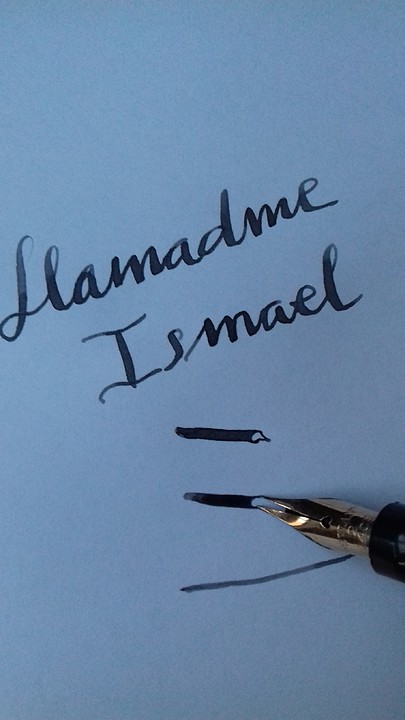 Llamadme
Ismael